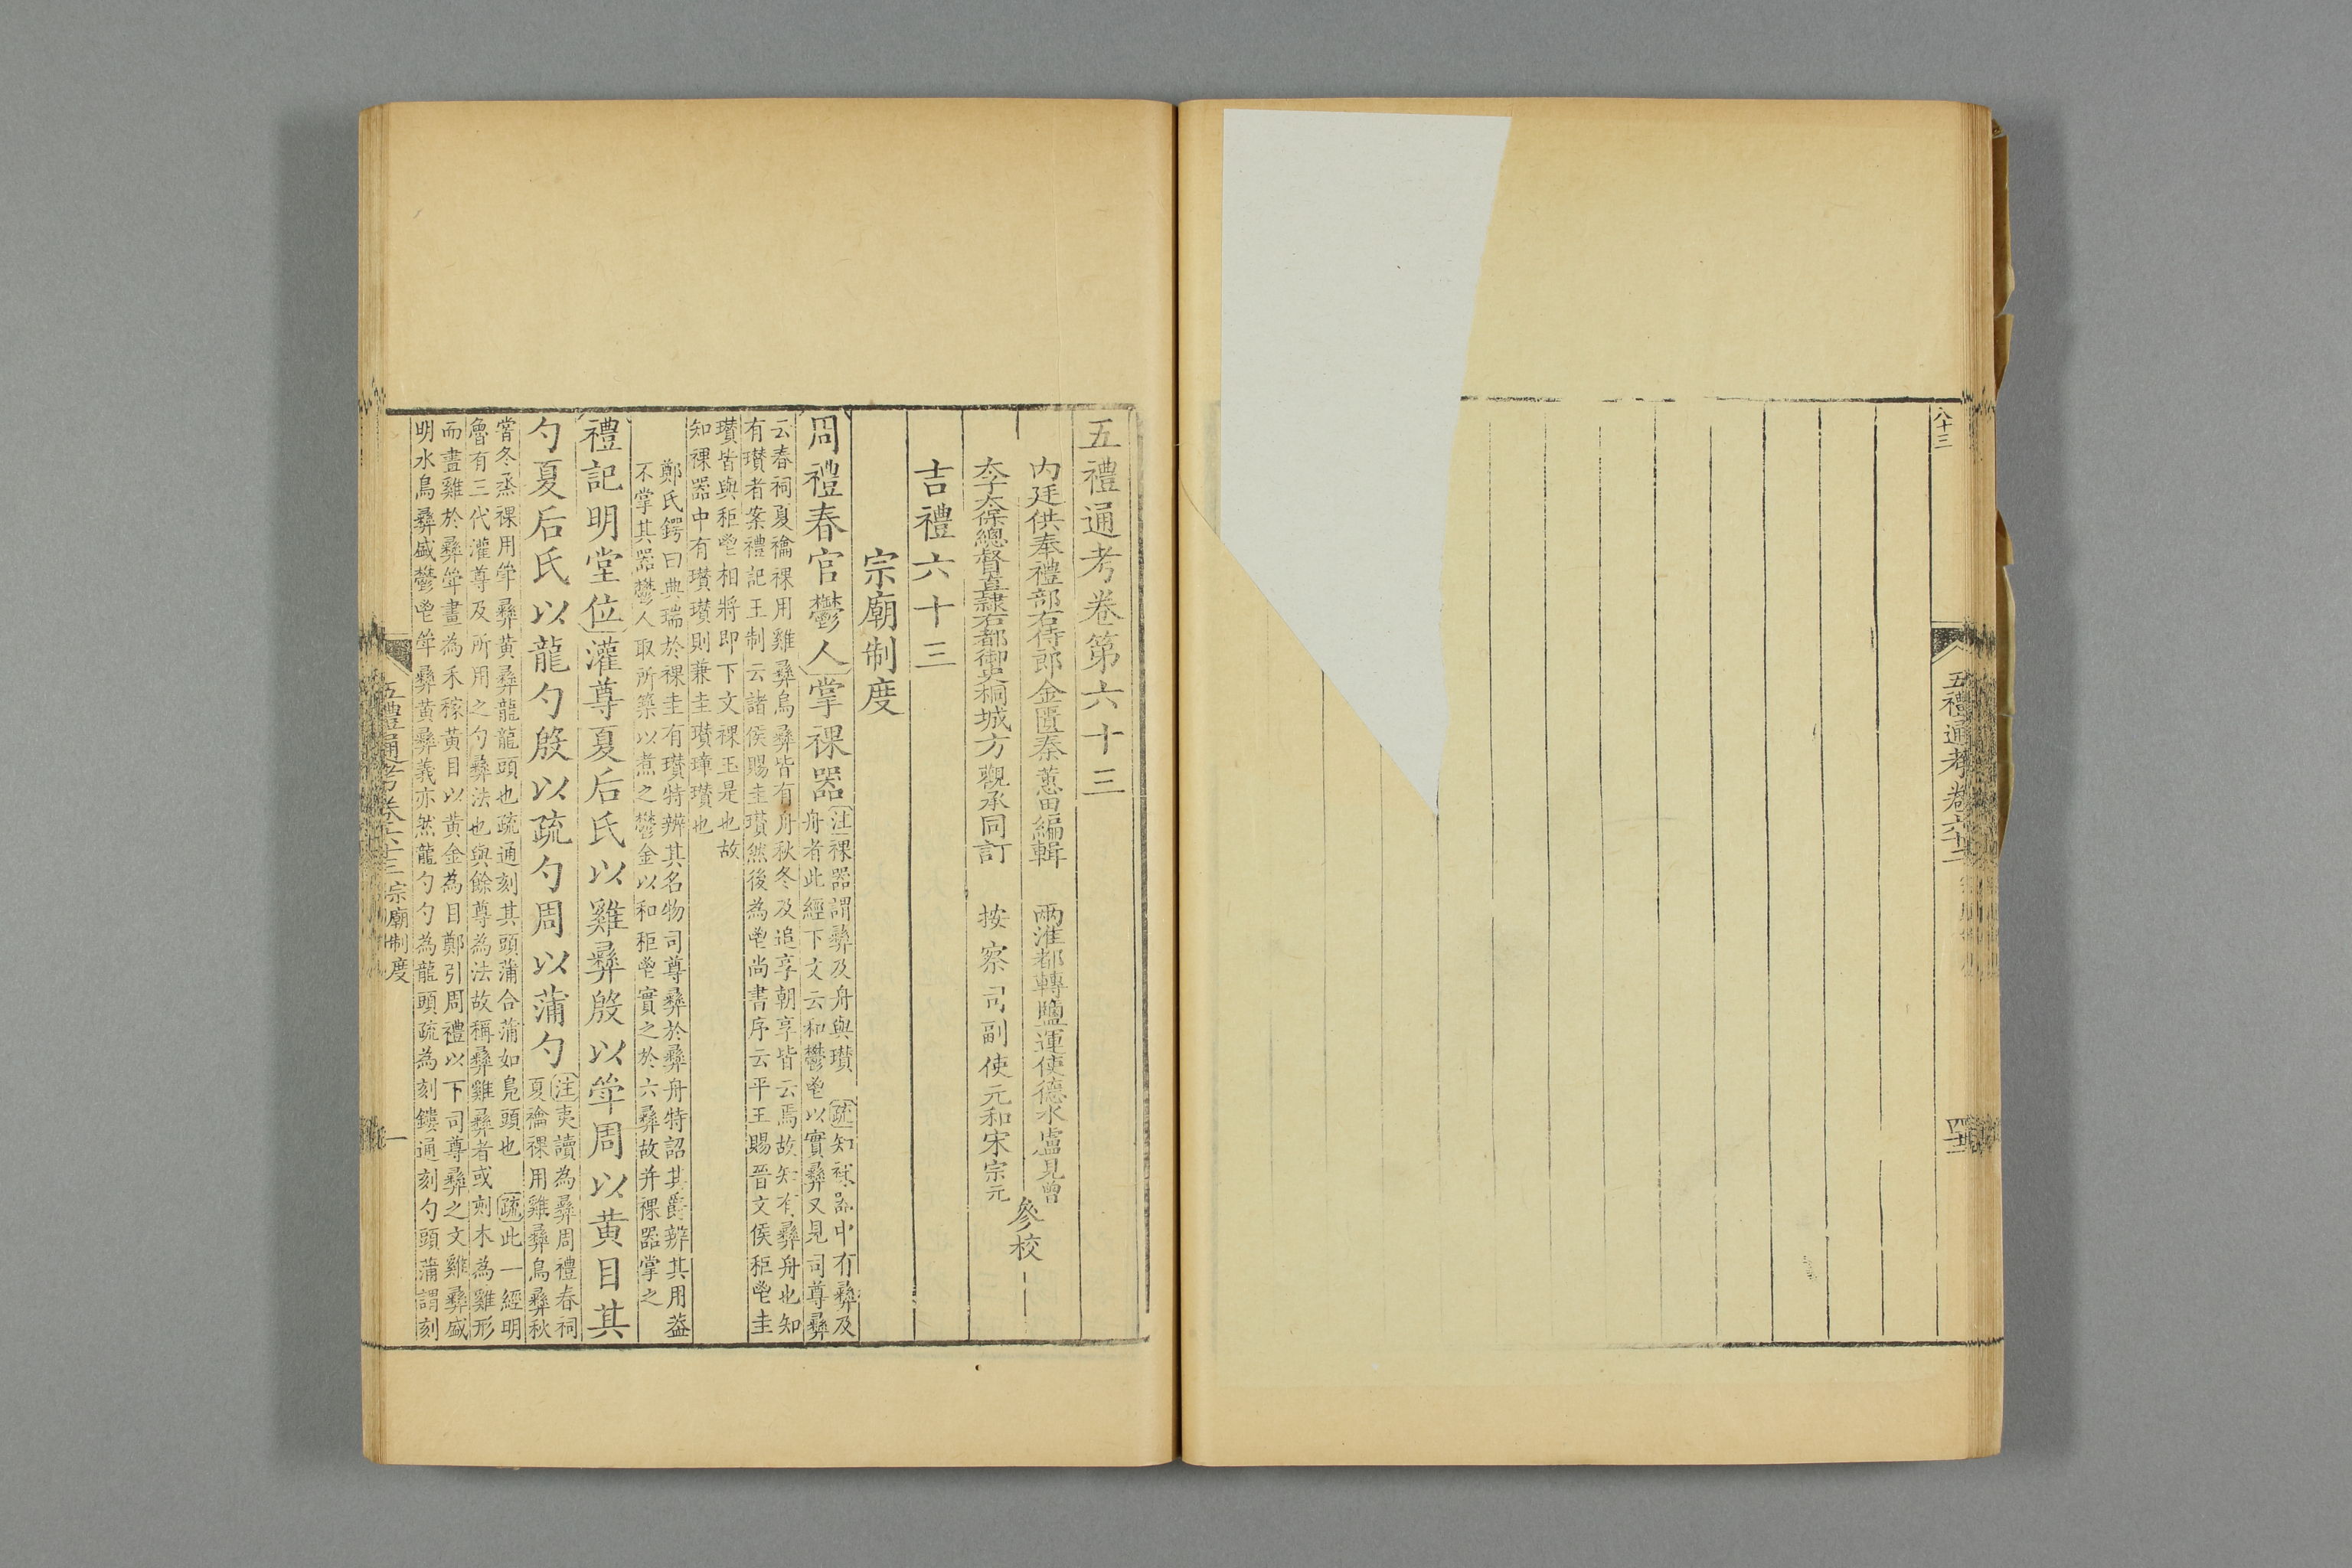 八十三
五禮通考卷六十二
四十三
五禮通考卷第六十三
内廷供奉禮部右侍郎金匱秦蕙田編輯
兩淮都轉鹽運使德水盧見曾
太子太保總督直隷右都御史桐城方觀承同訂
按察司副使元和宋宗元
參校
吉禮六十三
宗廟制度
周禮春官鬱人掌祼器
注祼器謂彝及舟與瓚 疏知祼器中有彝及
舟者此經下文云和鬱鬯以實彝又見司尊彝
云春祠夏禴祼用雞彝鳥彝皆有舟秋冬及追享朝享皆云焉故知有彝舟也知
有瓚者案禮記王制云諸侯賜圭瓚然後為鬯尚書序云平王賜晉文侯秬鬯圭
瓚皆與秬鬯相將即下文祼玉是也故
知祼器中有瓚瓚則兼圭瓚璋瓚也
鄭氏鍔曰典瑞於祼圭有瓚特辨其名物司尊彝於彝舟特詔其爵辨其用葢
不掌其器鬱人取所築以煮之鬱金以和秬鬯實之於六彝故并祼器掌之
禮記明堂位灌尊夏后氏以雞彝殷以斝周以黃目其
勺夏后氏以龍勺殷以疏勺周以蒲勺
注夷讀為彝周禮春祠
夏禴祼用雞彝鳥彝秋
嘗冬烝祼用斝彝黃彝龍龍頭也疏通刻其頭蒲合蒲如鳧頭也 疏此一經明
魯有三代灌尊及所用之勺彝法也與餘尊為法故稱彝雞彝者或刻木為雞形
而畫雞於彝斝畫為禾稼黃目以黃金為目鄭引周禮以下司尊彝之文雞彝盛
明水鳥彝盛鬱鬯斝彝黃彝義亦然龍勺勺為龍頭疏為刻鏤通刻勺頭蒲謂刻
五禮通考卷六十三 宗廟制度
一